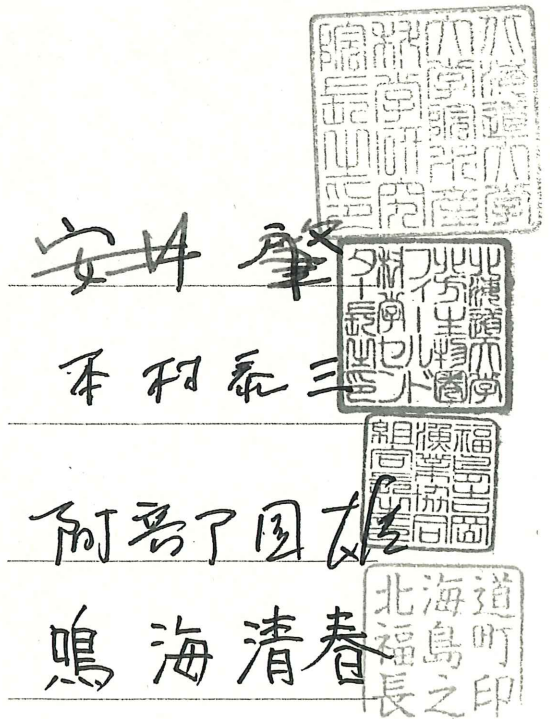 北海道大学
大学院水産
科学研究
院長之印
安井 肇
北海道大学
北方生物圏
フィールド
科学セン
ター長之印
本村泰三
福島吉岡
漁業協同
組合長之印
阿部国雄
北海道
福島町
長之印
鳴海清春